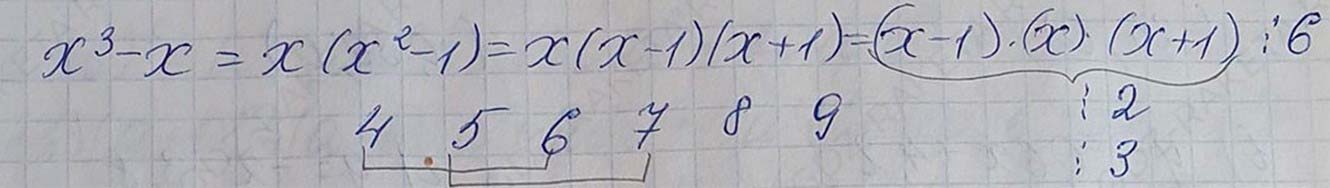 x³-x = x(x²-1)=x(x-1)(x+1)=(x-1)·(x)·(x+1)⋮6
4 5 6 7 8 9 ⋮2
⋮3